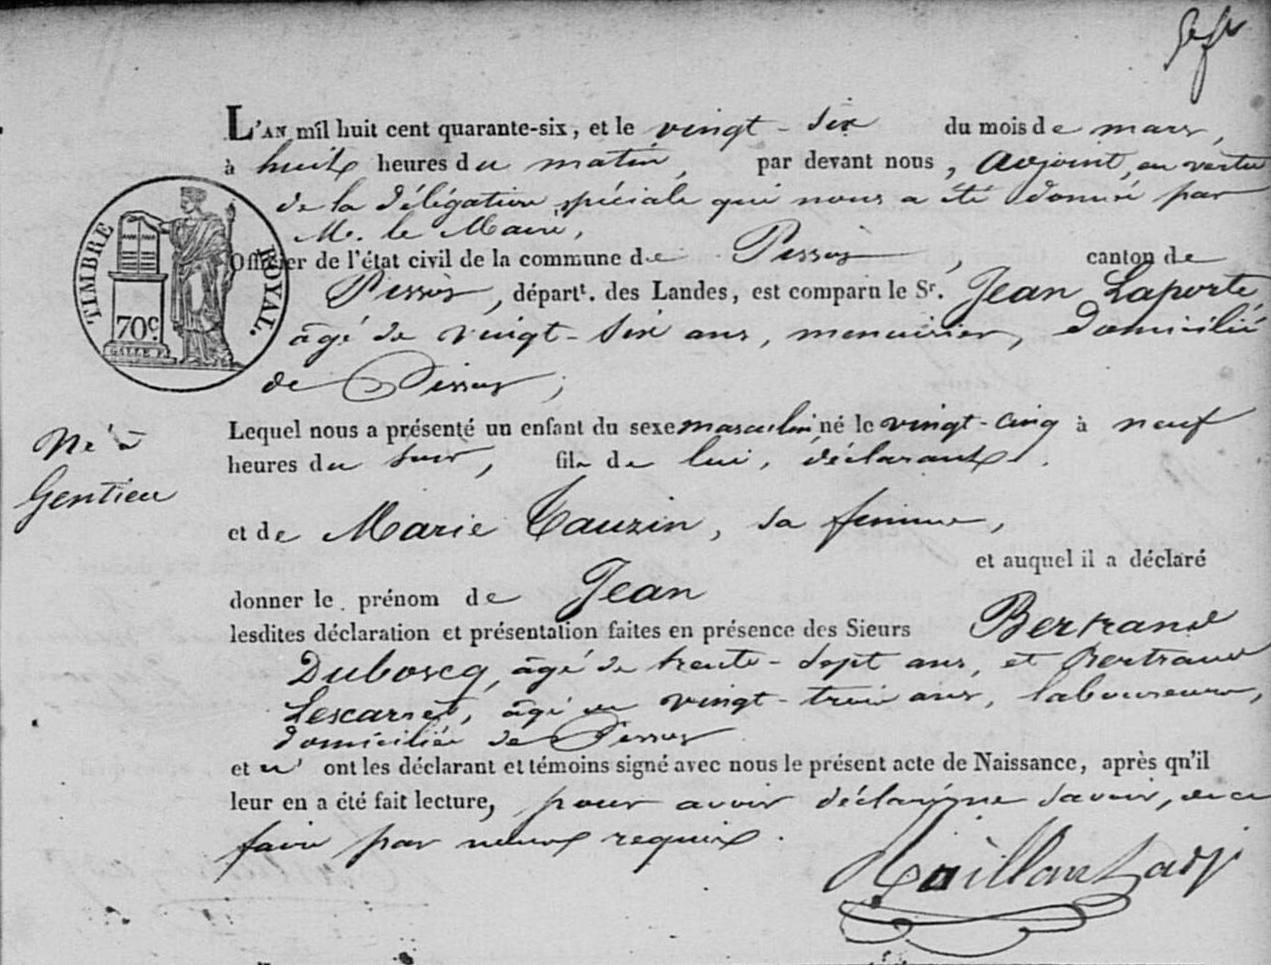 L'AN mil huit cent quarante-six, et le vingt-six du mois de mars,
à huit heures du matin, par devant nous, adjoint, en vertu
de la délégation spéciale qui nous a été donnée par
Mr. le Maire,
Officier de l'état civil de la commune de Pissos, canton de
Pissos, départt. des Landes, est comparu le Sr. Jean Laporte,
âgé de vingt-six ans, menuisier, domicilié
de Pissos;
Lequel nous a présenté un enfant du sexe masculin né le vingt-cinq à neuf
heures du soir, fils de lui, déclarant
et de Marie Tauzin, sa femme,
et auquel il a déclaré
donner le prénom de Jean
lesdites déclaration et présentation faites en présence des Sieurs Bertrand
Duboscq, âgé de trente-sept ans, et Bertrand
Lescarret, âgé de vingt-trois ans, laboureurs,
domiciliés de Pissos
et n' ont les déclarant et témoins signé avec nous le présent acte de Naissance, après qu'il
leur en a été fait lecture, pour avoir déclaré ne savoir, de ce
faire par nous requis.
adjt
Né à
Gentieu
TIMBRE ROYAL.
70c
GALLE F.